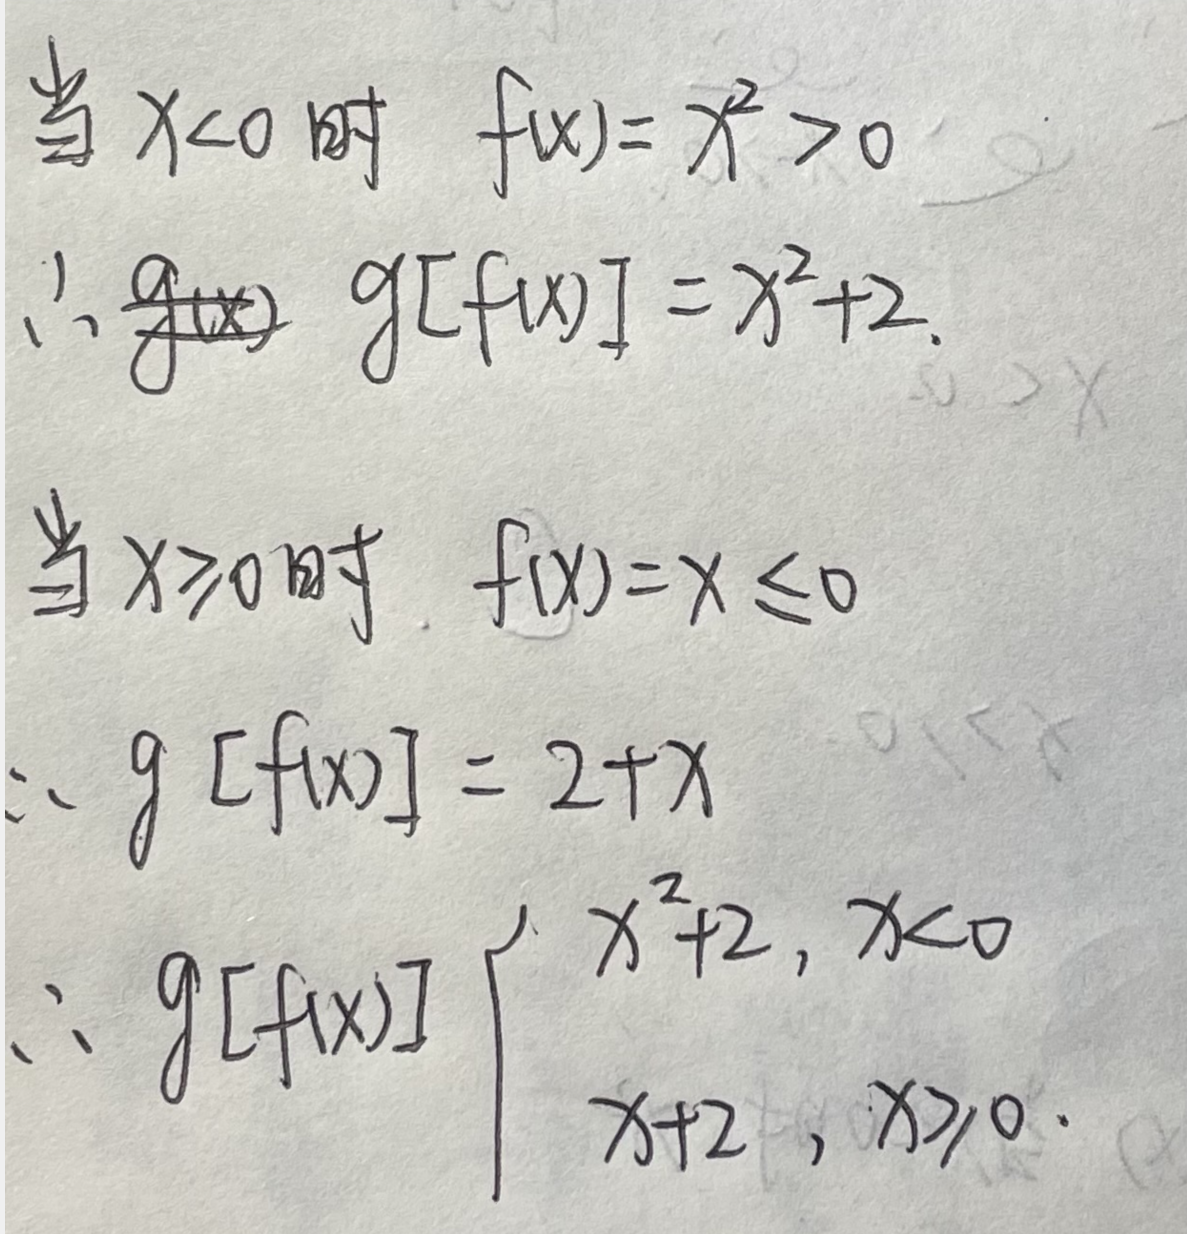 当 x<0 时 f(x)=x²>0
∴ g[f(x)]=x²+2.
当 x≥0 时 f(x)=x≤0
∴ g[f(x)]=2+x
∴ g[f(x)] { x²+2, x<0
x+2, x≥0.